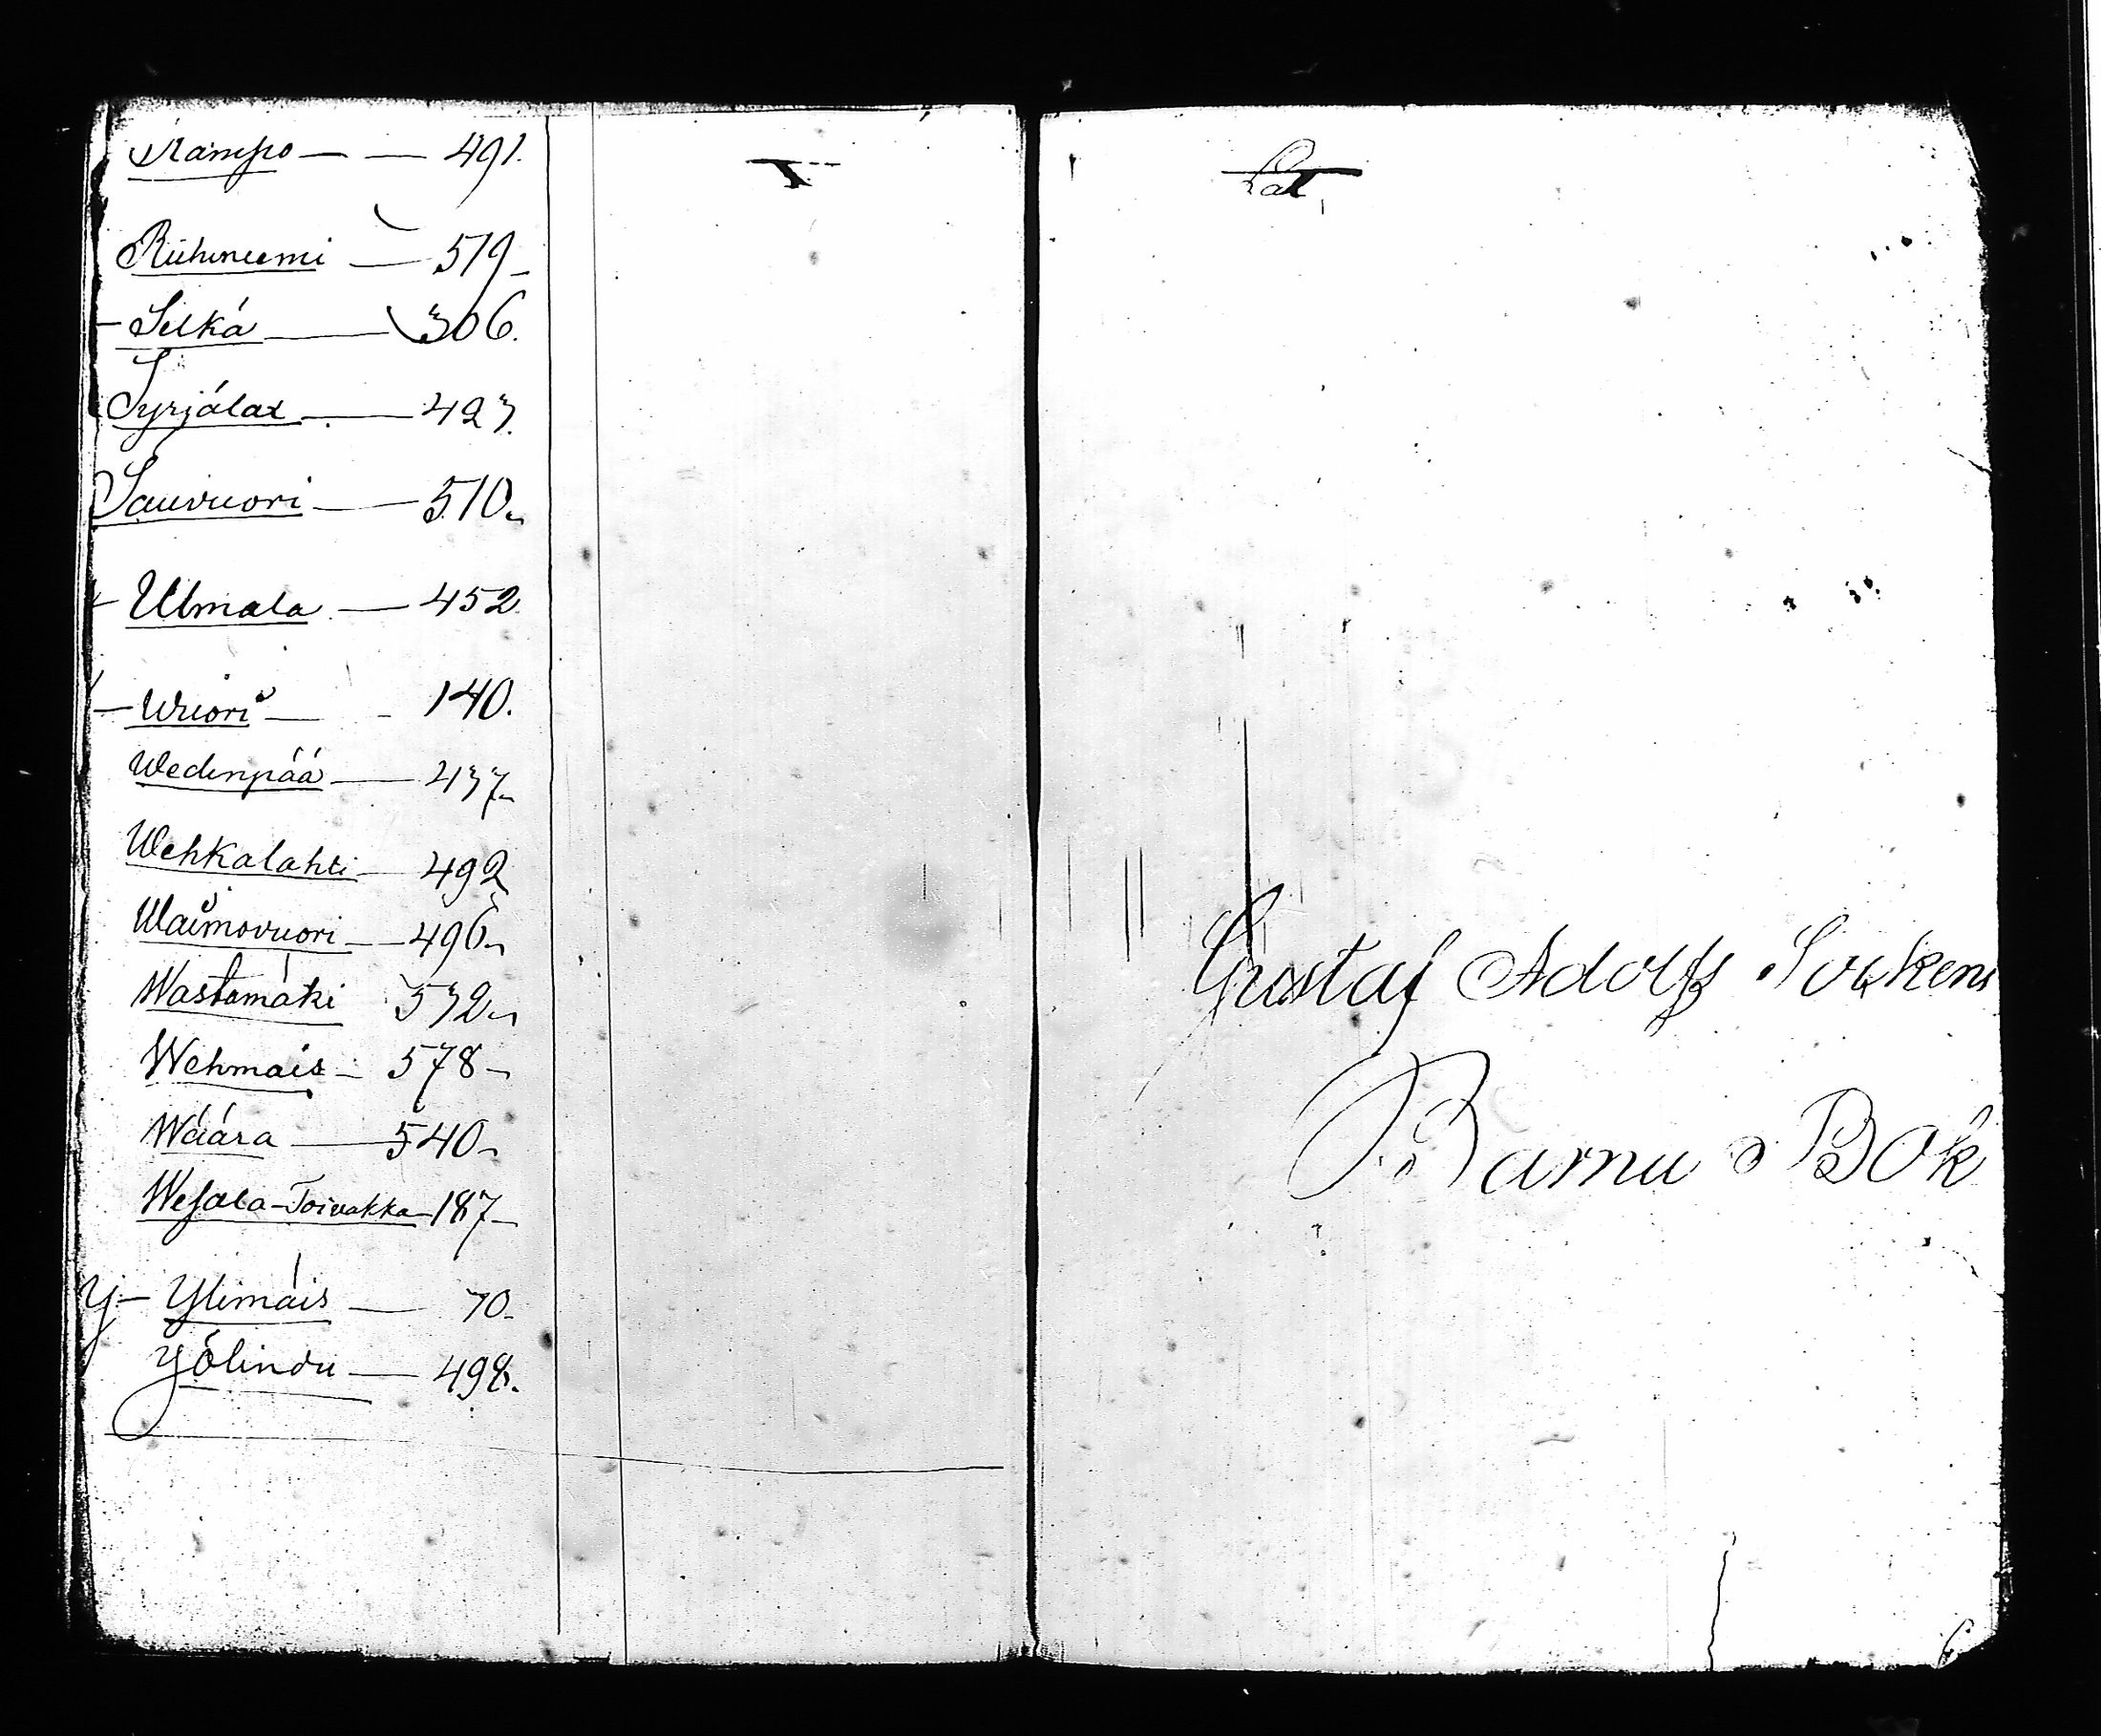 Rämpo — — 491.
Riihiniemi — 519
- Selkä — 306.
Syrjälax — 427.
Sauvuori — 510
Ulmala — 452
- Wuori — - 140.
Wedenpää — 437
Wehkalahti — 492
Waimovuori — 496
Wastamäki 572
Wehmais — 578
Wäära — 540
Wesala-Toivakka — 187
Y — Ylimáis — 70.
Yölindu — 498.
Gustaf Adolfs Sockens
Barna Bok